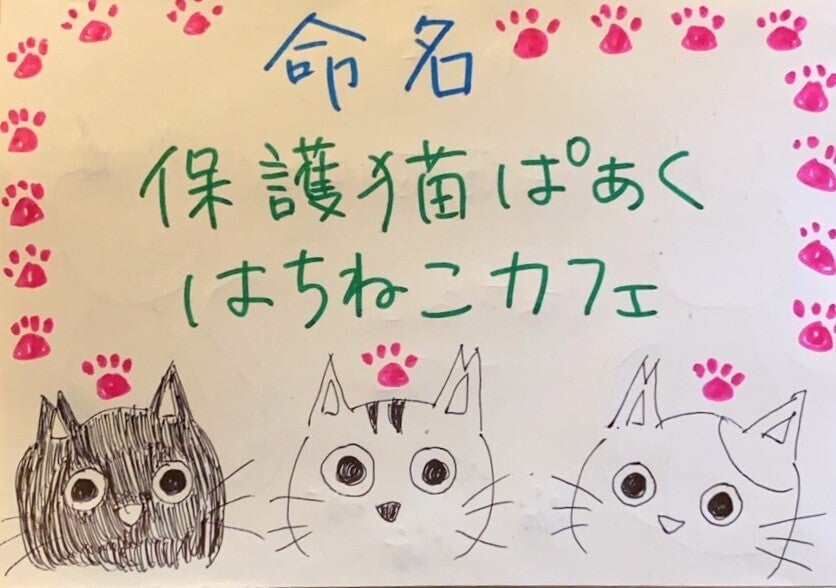 命名
保護猫ぱぁく
はちねこカフェ